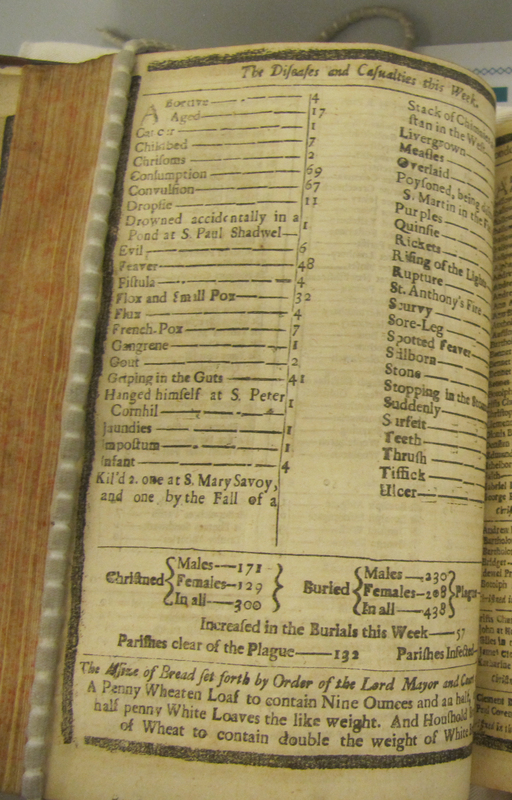 The Diseases and Casualties this Week.
Abortive 4
Aged 17
Cancer 1
Childbed 7
Chrisoms 2
Consumption 69
Convulsion 67
Dropsie 11
Drowned accidentally in a
Pond at S. Paul Shadwel 1
Evil 6
Feaver 48
Fistula 4
Flox and small Pox 32
Flux 4
French-Pox 7
Gangrene 1
Gout 2
Griping in the Guts 41
Hanged himself at S. Peter
Cornhil 1
Jaundies 1
Impostum 1
Infant 4
Kil'd 2. one at S. Mary Savoy,
and one by the Fall of a
Stack of
stan in the
Livergrown
Measles
Overlaid
Poysoned, being
S. Martin in the
Purples
Quinsie
Rickets
Rising of the Lights
Rupture
St. Anthony's Fire
Scurvy
Sore-Leg
Spotted Feaver
Stilborn
Stone
Stopping in the
Suddenly
Surfeit
Teeth
Thrush
Tissick
Ulcer
Christned { Males—171 Females—129 In all—300 }
Buried { Males—230 Females—208 In all—438 } Plague
Increased in the Burials this Week—57
Parishes clear of the Plague—132 Parishes Infected
The Assize of Bread set forth by Order of the Lord Mayor and Court
A Penny Wheaten Loaf to contain Nine Ounces and an half,
half penny White Loaves the like weight. And Houshold
of Wheat to contain double the weight of White